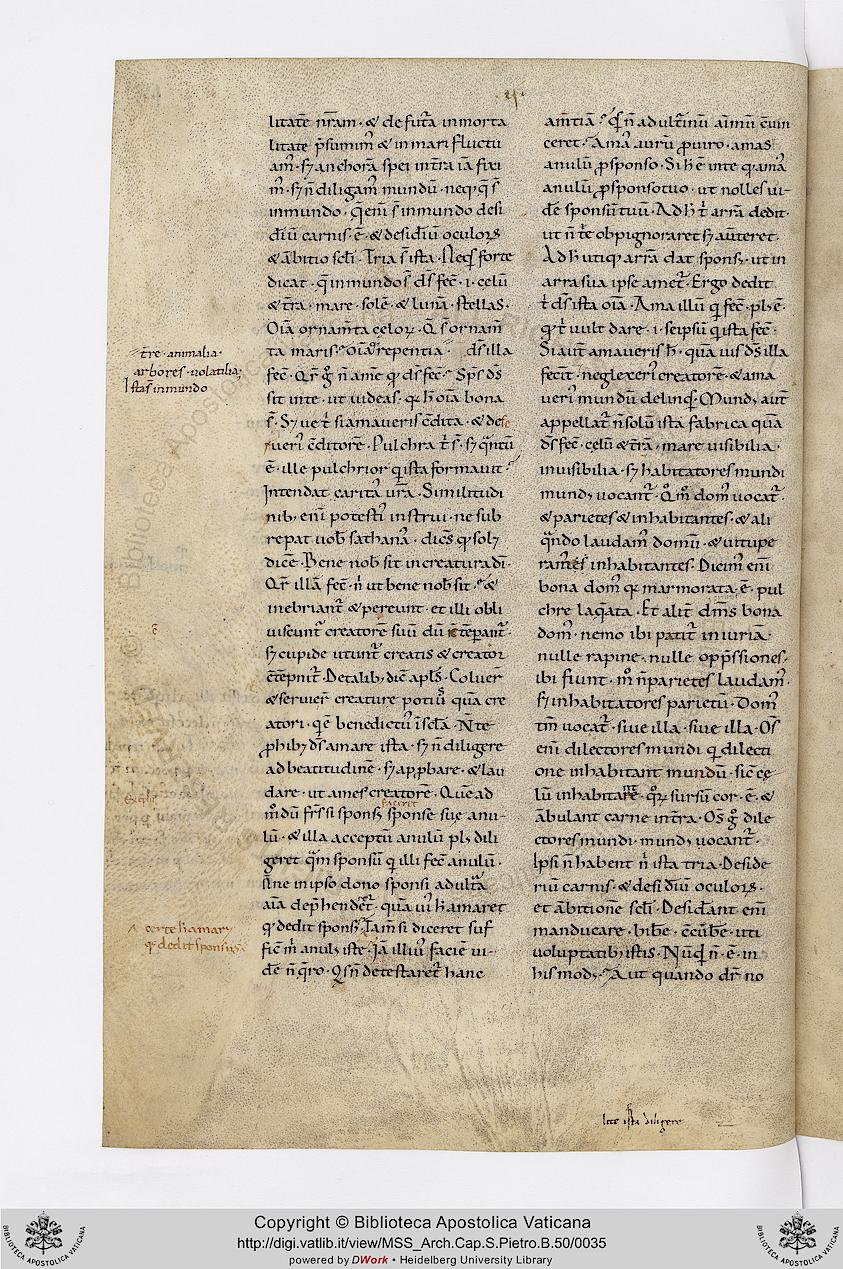 litatē nr̄am · & de futa᷑ inmorta
litate p̄sumim᷒ & in mari fluctu
am᷒ · sꝫ anchora᷑ spei in tr̄a iā fixi
m᷒ · sꝫ n̄ diligam᷒ mundū · neq; q̄ s̄
in mundo · q̄ enī s̄ in mundo desi
diū carnis · ē · & desidiū oculoꝝ
& ābitio scl̄i · Tria s̄ ista · Neq's forte
dicat · q̄ in mundo s̄ ds̄ fec̄ · i · celū
& tr̄a · mare · solē · & lunā · stellas ·
Oīa ornam̄ta celoꝝ · Q̄ s̄ ornam̄
ta maris · oīa repentia · ds̄ illa
fec̄ · Qr̄ g̊ n̄ amē q̄ ds̄ fec̄ · Sp̄s dī
sit in te · ut videas · qꝫ h oīa bona
s̄ · Sꝫ ve t᷑ si amaveris c̄dita · & dese
ruerˀ c̄ditorē · Pulchra t᷑ s̄ · sꝫ q̄ntū
ē · ille pulchrior qˀ ista formavit ·
Intendat caritaˀ vr̄a · Similitudi
nib; enī potestˀ instrui · ne sub
repat vob̄ sathanaˀ · dicēs qꝫ sol;
dicē · Bene nob̄ sit in creatura dī ·
Qr̄ illā fec̄ · n̄ ut bene nob̄ sit · &
inebriant᷑ & pereunt · et illi obli
viscunt᷑ creatorē suū dū ītēperant᷑ ·
sꝫ cupide utunt᷑ creatis & creator
c̄tēpnit᷑ · De talib; dic̄ apl̄s · Coluer̄
& servier̄ creature potiusˀ quā cre
atori · q̄ ē benedictus ī scl̄a · N te
ꝓhib; ds̄ amare ista · sꝫ n̄ diligere
ad beatitudinē · sꝫ apꝓbare & lau
dare · ut ames creatorē · Quē ad
m̊dū frs̄ si spons; sponse sue anu-
faceret
lū · & illa acceptū anulū pl; dili
geret qˀm sponsū qˀ illi fec̄ anulū ·
nne in ipso dono sponsi adulta᷑
aīa dep̄hendet᷑ · quāvˀ h amaret
qˀ dedit spons; · Tamˀ si diceret suf
fic̄ m̊ anul; iste · Iā illiˀ faciē vi-
dē n̄ q̄ro · Qˀs n̄ detestaret᷑ hanc
am̄tiā · Qˀ n̄ adulti᷑nū aīmū c̄vin
ceret · Amaˀ aurū ꝓ viro · amas
anulū ꝓ sponso · Si h ē in te qꝫ amaˀ
anulū ꝓ sponso tuo · ut nolles vi-
dē sponsū tuū · Ad h t᷑ arrā dedit ·
ut n̄ te obpignoraret sꝫ av̄teret ·
Ad h utiqꝫ arrā dat spons; · ut in
arra sua ipse amet᷑ · Ergo dedit
t᷑ ds̄ ista oīa · Ama illū qˀ fec̄ · pl; ē ·
qꝫ t᷑ vult dare · i · seipsū qˀ ista fec̄ ·
Si aut̄ amaveris h · quāvis ds̄ illa
fecit · neglexerˀ creatorē · & ama
verˀ mundū delinqˀ · Mund; aut̄
appellat᷑ n̄ solū ista fabrica quā
ds̄ fec̄ · celū & tr̄ā · mare visibilia ·
invisibilia · sꝫ habitatores mundi
mund; vocant᷑ · Qˀm̊ dom᷒ vocat᷑ ·
& parietes & inhabitantes · & ali
qˀndo laudam᷒ domū · & vitupe
ram᷒ inhabitantes · Dicim᷒ enī
bona dom᷒ qꝫ marmorata · ē · pul
chre laq̄ata · Et alit᷑ dim᷒s bona
dom᷒ · nemo ibi patit᷑ iniuriā ·
nulle rapine · nulle opp̄ssiones ·
ibi fiunt · m̊ n̄ parietes laudam᷒ ·
sꝫ inhabitatores parietū · Dom᷒
tm̄ vocat᷑ · sive illa · sive illa · Os̄
enī dilectores mundi qˀ dilecti
one inhabitant mundū · sic̄ ce
lū inhabitant · qˀꝝ sursū cor · ē · &
ābulant carne in tr̄a · Os̄ g̊ dile
ctores mundi · mund; vocant᷑ ·
Ipsi n̄ habent n̄ ista tria · Deside
riū carnis · & desidiū oculoꝝ ·
et ābitionē scl̄i · Desidāt enī
manducare · bibē · c̄cūbē · uti
voluptatib; istis · Nūqˀd n̄ · ē · in
his mod; · Aut quando dr̄ no
tr̄e · animalia ·
arbores · volatilia;
Ista s̄ in mundo
certe h amaˀ
qꝫ dedit spons;
lite ista diligere
Copyright © Biblioteca Apostolica Vaticana
http://digi.vatlib.it/view/MSS_Arch.Cap.S.Pietro.B.50/0035
powered by DWork • Heidelberg University Library